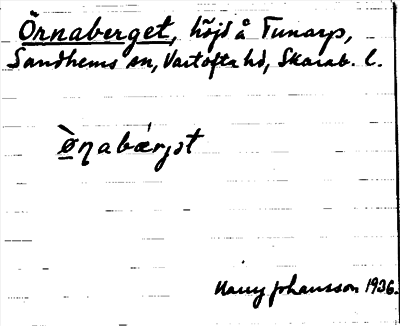 Örnaberget, höjd å Tunarp,
Sandhems sn, Vartofta hd, Skarab. l.
ø̠̀ηabǽrjət
Harry Johansson 1936.